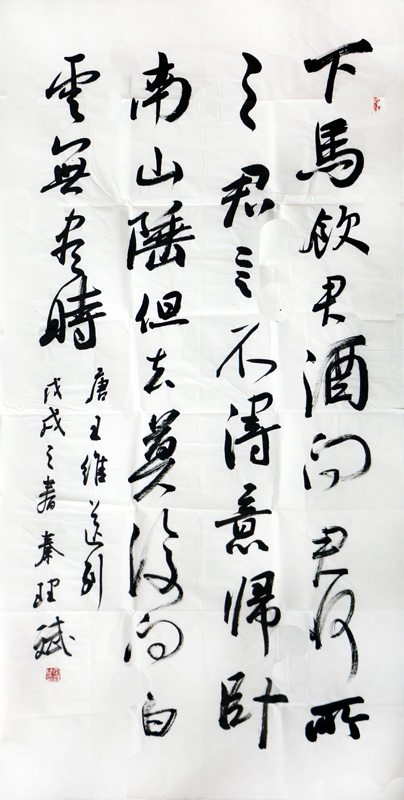 下馬飲君酒问君何所
之君言不得意歸卧
南山陲但去莫復问白
雲無尽時
唐王維送别
戊戌之春秦理斌